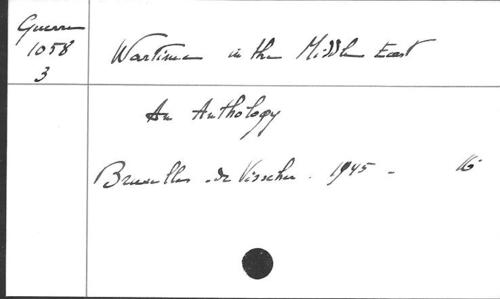 Guerre
1058
3
Wartime in the Middle East
An Anthology
Bruxelles de Visscher. 1945 - 16°